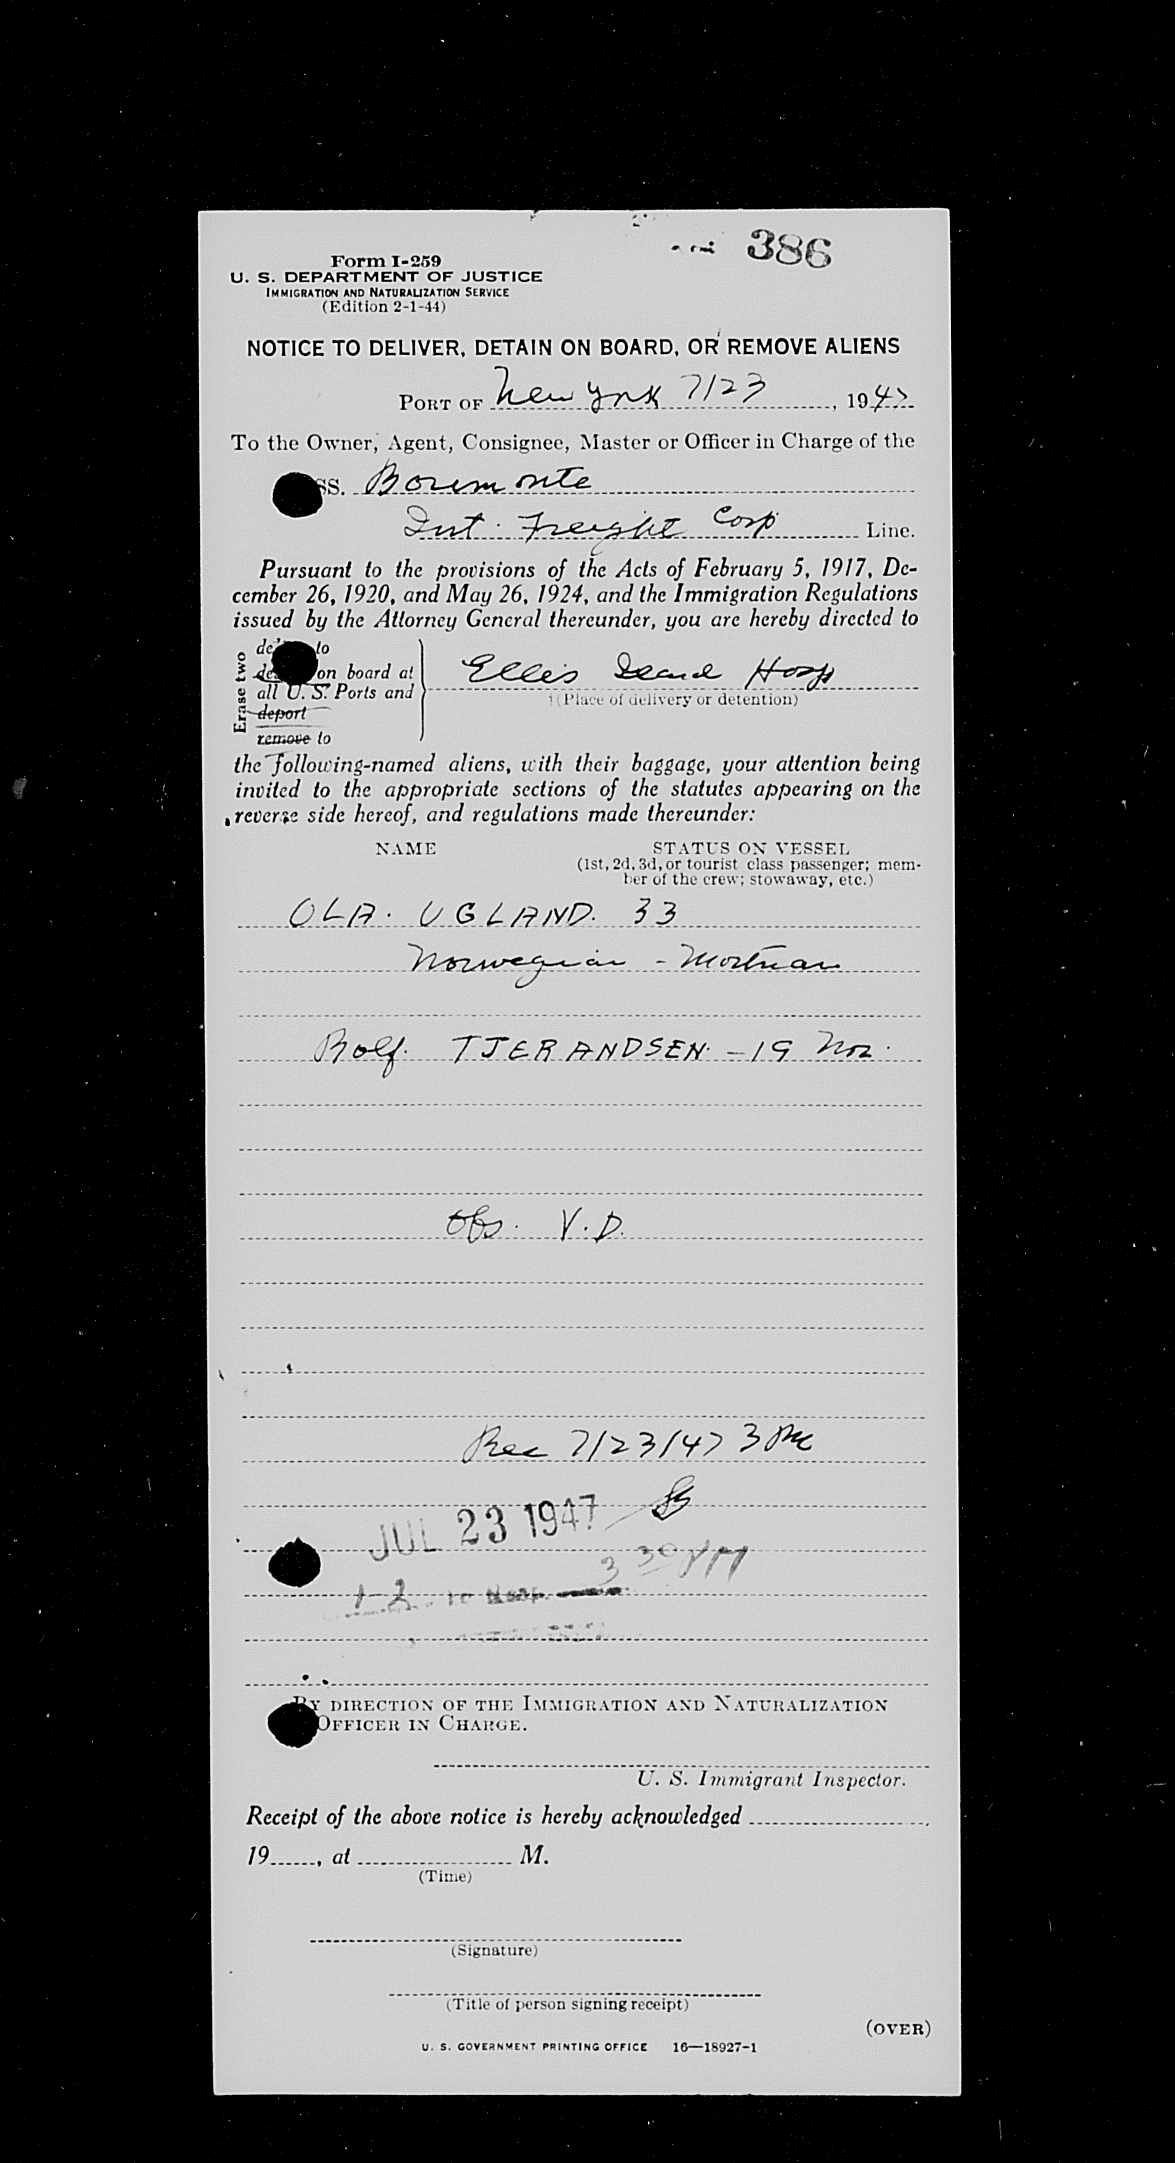 386
Form I-259
U. S. DEPARTMENT OF JUSTICE
IMMIGRATION AND NATURALIZATION SERVICE
(Edition 2-1-44)
NOTICE TO DELIVER, DETAIN ON BOARD, OR REMOVE ALIENS
PORT OF New York 7/23, 1947
To the Owner, Agent, Consignee, Master or Officer in Charge of the
SS. Boremonte
Int. Freight Corp Line.
Pursuant to the provisions of the Acts of February 5, 1917, De-
cember 26, 1920, and May 26, 1924, and the Immigration Regulations
issued by the Attorney General thereunder, you are hereby directed to
Erase two
to
on board at
all U. S. Ports and
deport
remove to
Ellis Island Hosp
(Place of delivery or detention)
the following-named aliens, with their baggage, your attention being
invited to the appropriate sections of the statutes appearing on the
reverse side hereof, and regulations made thereunder:
NAME STATUS ON VESSEL
(1st, 2d, 3d, or tourist class passenger; mem-
ber of the crew; stowaway, etc.)
OLA. UGLAND. 33
Norwegian -
Rolf. TJERANDSEN. - 19 Nor.
Obs. V.D.
Rec 7/23/47 3 PM
JUL 23 1947
3 30 PM
1-2 to Hosp.
BY DIRECTION OF THE IMMIGRATION AND NATURALIZATION
OFFICER IN CHARGE.
U. S. Immigrant Inspector.
Receipt of the above notice is hereby acknowledged
19 , at M.
(Time)
(Signature)
(Title of person signing receipt)
(OVER)
U. S. GOVERNMENT PRINTING OFFICE 16—18927-1